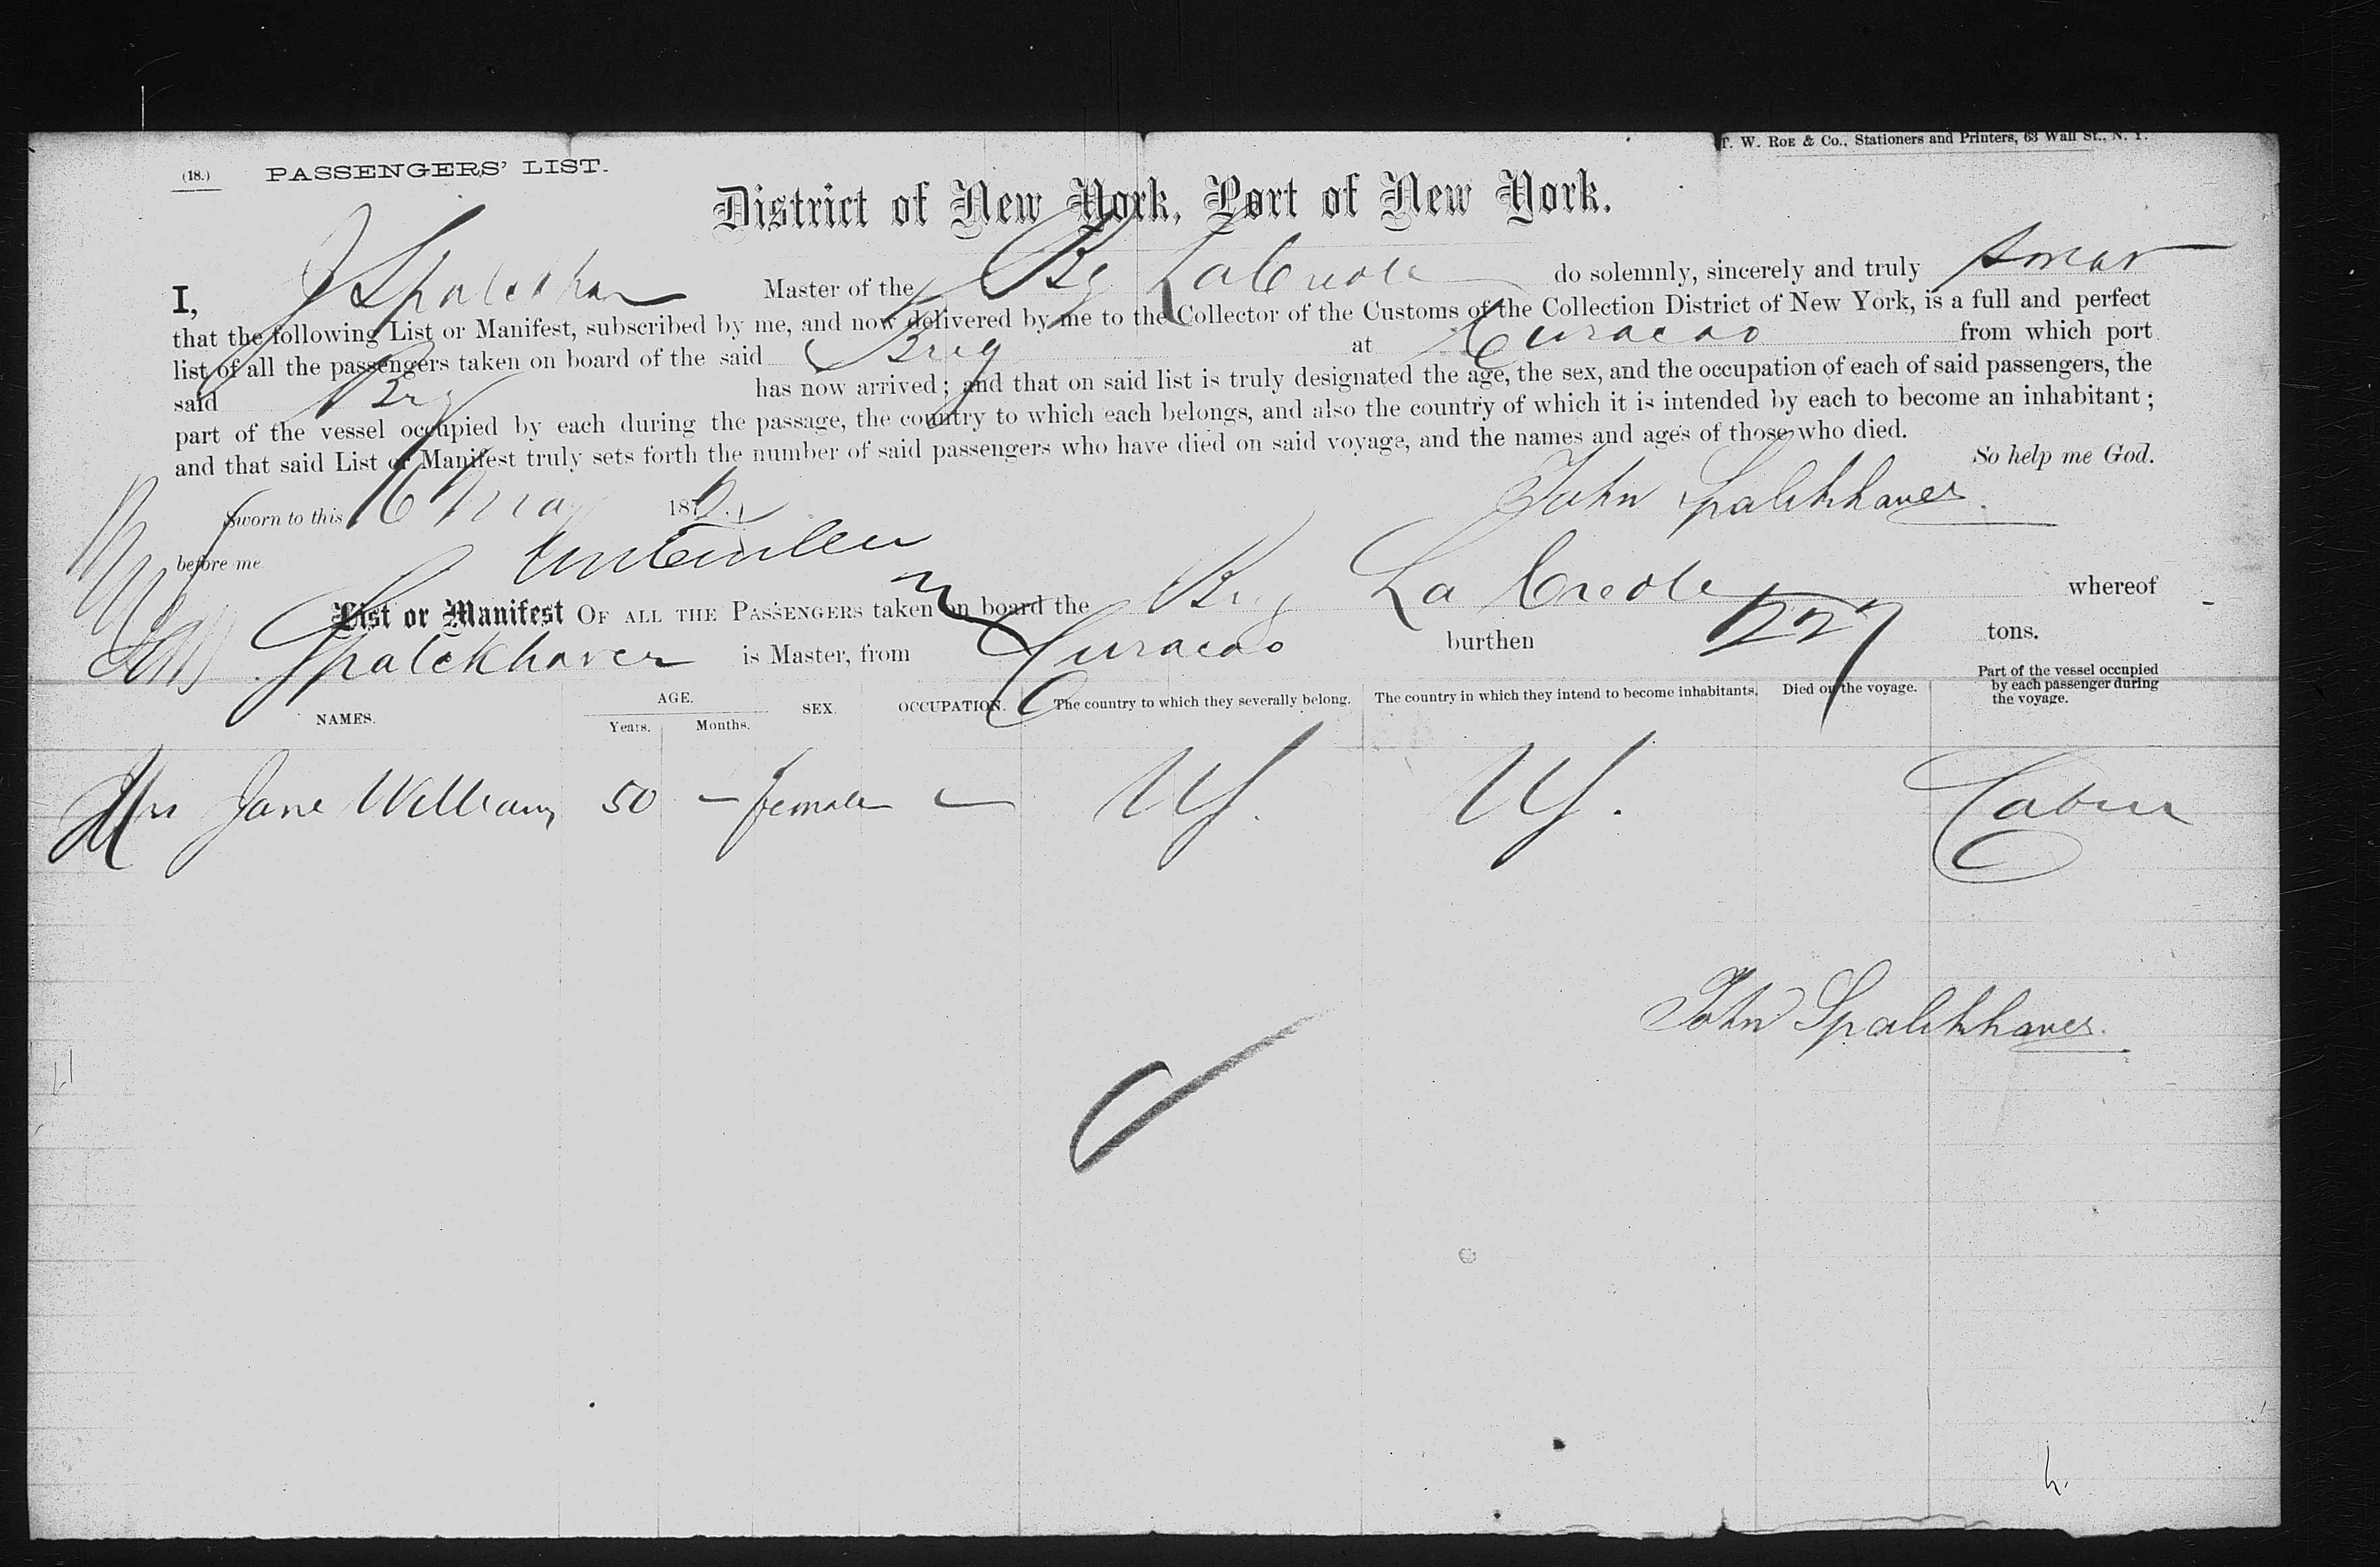 T. W. ROE & Co., Stationers and Printers, 63 Wall St., N. Y.
(18.) PASSENGERS' LIST.
District of New York, Port of New York.
I, J Spalckhaver Master of the Bg La Creole do solemnly, sincerely and truly swear
that the following List or Manifest, subscribed by me, and now delivered by me to the Collector of the Customs of the Collection District of New York, is a full and perfect
list of all the passengers taken on board of the said Brig at Curacao from which port
said Brg has now arrived; and that on said list is truly designated the age, the sex, and the occupation of each of said passengers, the
part of the vessel occupied by each during the passage, the country to which each belongs, and also the country of which it is intended by each to become an inhabitant;
and that said List or Manifest truly sets forth the number of said passengers who have died on said voyage, and the names and ages of those who died.
So help me God.
Sworn to this 16 May 187 John Spalckhaver
before me
List or Manifest OF ALL THE PASSENGERS taken on board the Brig La Creole whereof
Spalckhaver is Master, from Curacao burthen 227 tons.
NAMES. AGE. Years. Months. SEX. OCCUPATION. The country to which they severally belong. The country in which they intend to become inhabitants. Died on the voyage. Part of the vessel occupied by each passenger during the voyage.
Mrs Jane Williams 50 — female — US. US. Cabin
John Spalckhaver.